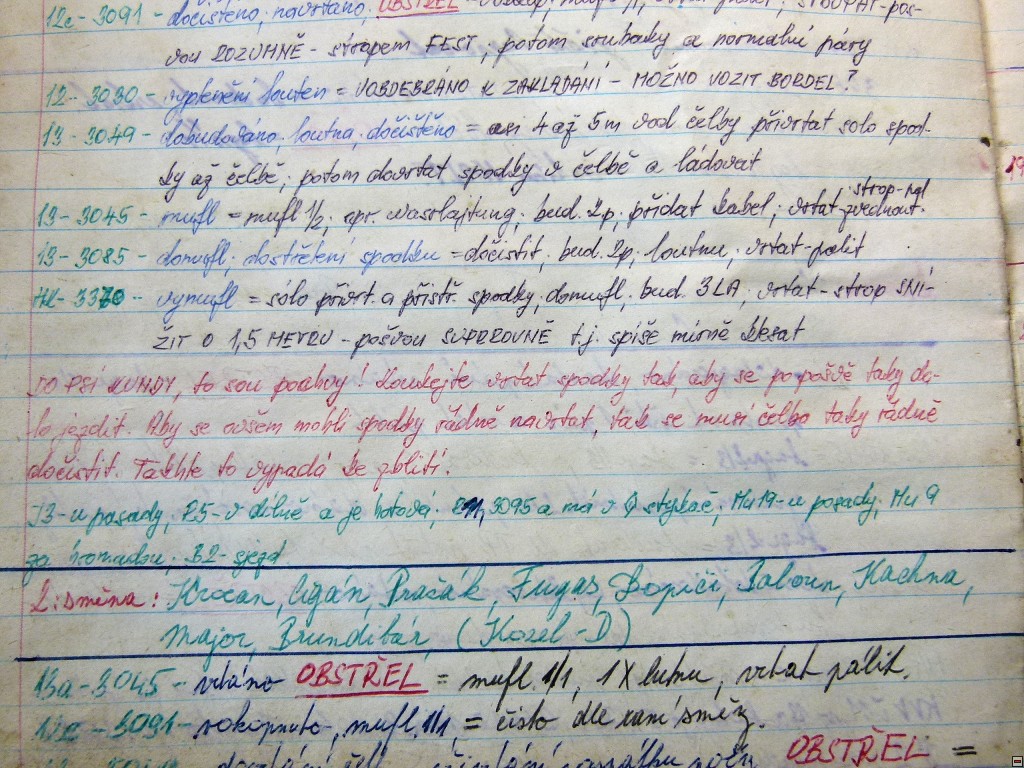 12c - 3091 - dočištěno, navrtáno, OBSTŘEL
vou ROZUMNĚ - stropem FEST, potom šroubáky a normální páry
12 - 3030 - vyplenění louten = VODEBRÁNO K ZAKLÁDÁNÍ - MOŽNO VOZIT BORDEL?
13 - 3049 - dobudováno, loutna, dočištěno = asi 4 až 5 m vod čelby přivrtat solo spod-
ky až čelbě, potom dovrtat spodky v čelbě a ládovat
13 - 3045 - mufl = mufl 1/2, opr. wasrlajtung, bud. 2p, přidat kabel, vrtat strop zvednout.
13 - 3085 - domufl, dostřelení spodku = dočistit, bud. 2p, loutnu, vrtat - pálit
3370 - vymufl = sólo přivrt. a přistř. spodky, domufl. bud. 3LA, vrtat - strop SNÍ-
ŽIT O 1,5 METRU - počvou SUPROVNĚ t.j. spíše mírně klesat
TO PSÍ KUNDY, to sou podvoy! Koukejte vrtat spodky tak, aby se po počvě taky da-
lo jezdit. Aby se ovšem mohli spodky řádně navrtat, tak se musí čelba taky řádně
dočistit. Takhle to vypadá ke zblití.
J3 - u posady, P5 - v dílně a je hotová, 3095 a má v stykač, Mu19 - u posady, Mu 9
za hromadou, B2 - sjezd.
2. směna: Krocan, Cigán, Pračák, Fugas, Bopiči, Baloun, Kachna,
Major, Brundibár, (Kozel - D)
13a - 3045 - vrtáno OBSTŘEL = mufl. 1/1, 1 x lutnu, vrtat pálit.
12c - 3091 - rokopnuto, mufl. 1/1 = čisto dle ranní směny.
OBSTŘEL =